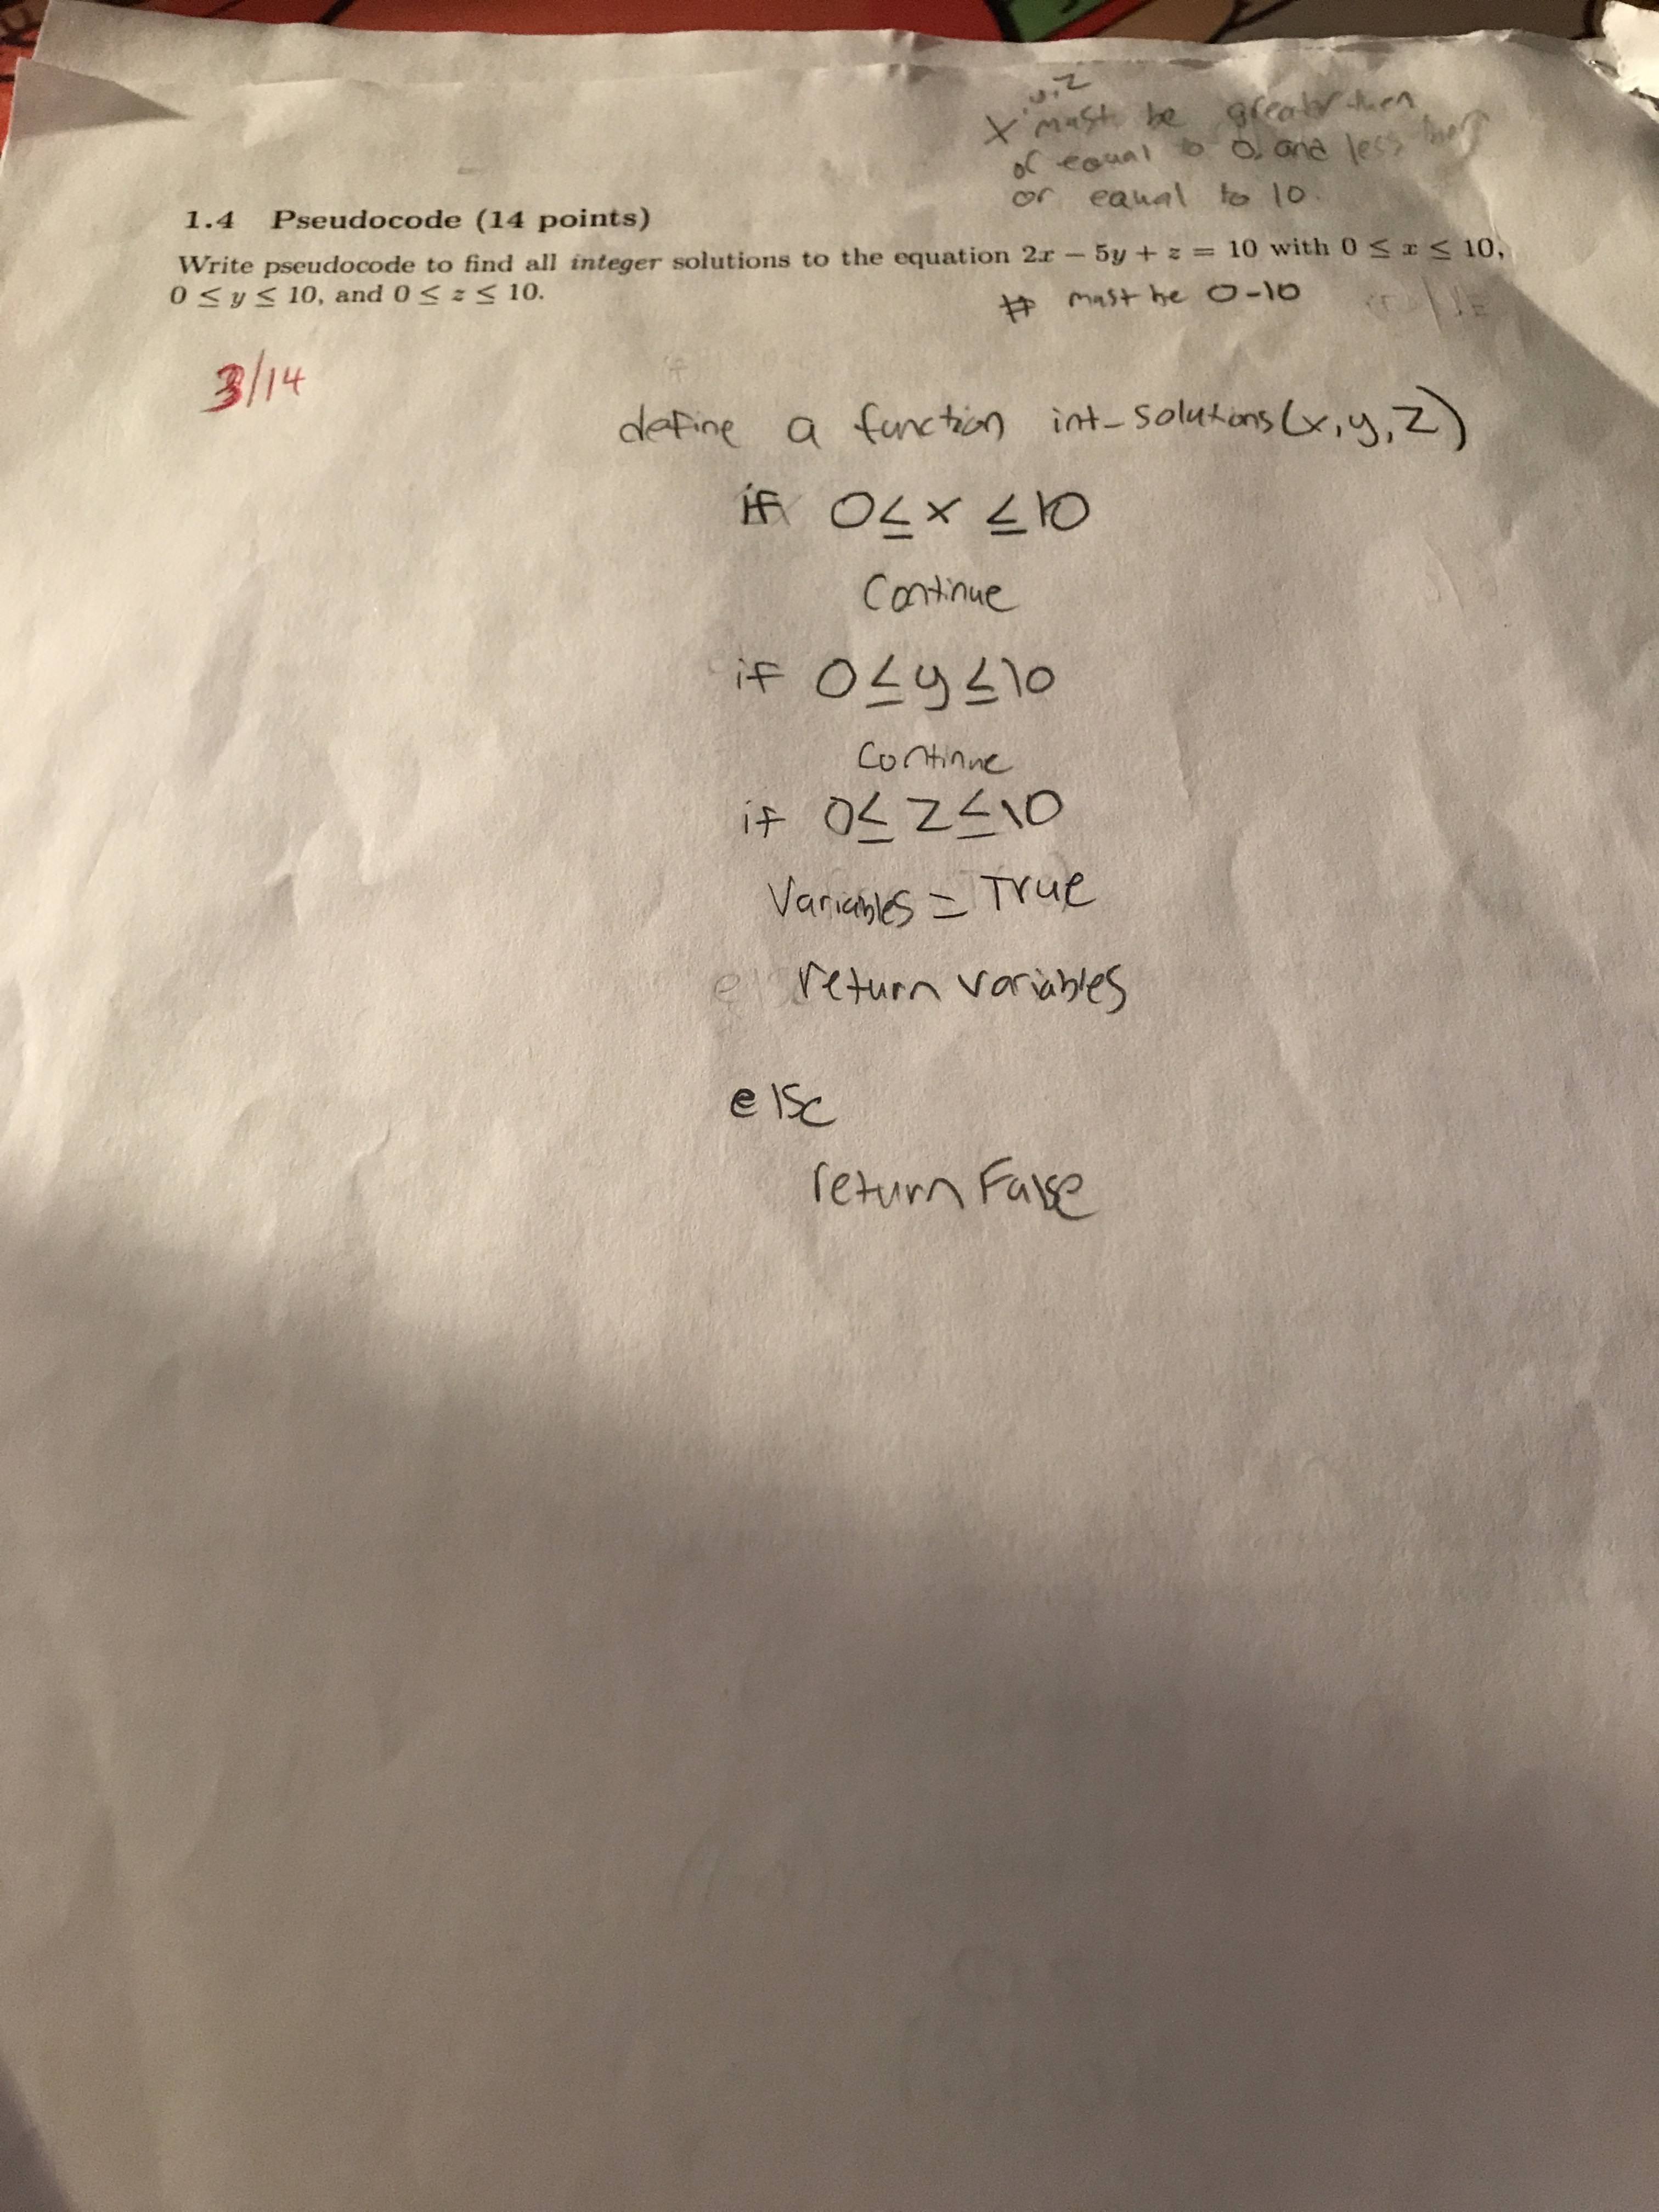 x y,z must be greater then
or equal to 0 and less then
or equal to 10.
1.4 Pseudocode (14 points)
Write pseudocode to find all integer solutions to the equation 2x − 5y + z = 10 with 0 ≤ x ≤ 10,
0 ≤ y ≤ 10, and 0 ≤ z ≤ 10.
# must be 0-10
3/14
define a function int_solutions(x,y,z)
if 0≤x≤10
Continue
if 0≤y≤10
Continue
if 0≤z≤10
Variables = True
return variables
else
return False